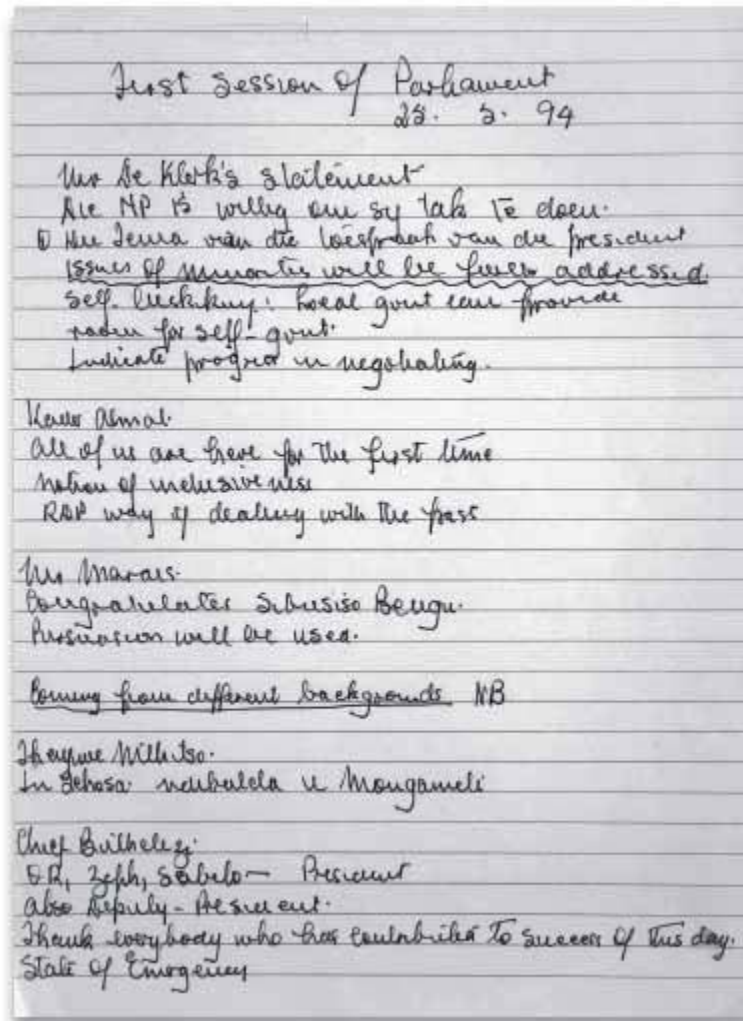 First Session of Parliament
25. 5. 94
Mr De Klerk's statement
Die NP is willig om sy tak te doen.
Die Tema van die toespraak van die president
Issues of minorities will be further addressed
Self- : Local govt can provide
room for self-govt.
Indicate progress in negotiating.
Kader Asmal.
All of us are here for the first time
Notion of inclusiveness
RDP way of dealing with the past
Mr Marais.
Congratulates Sibusiso Bengu.
Persuasion will be used.
Coming from different backgrounds NB
In Xhosa. u Mongameli
Chief Buthelezi.
Zeph, Sabelo — President
Also Deputy-President.
Thank everybody who has contributed to success of this day.
State of Emergency